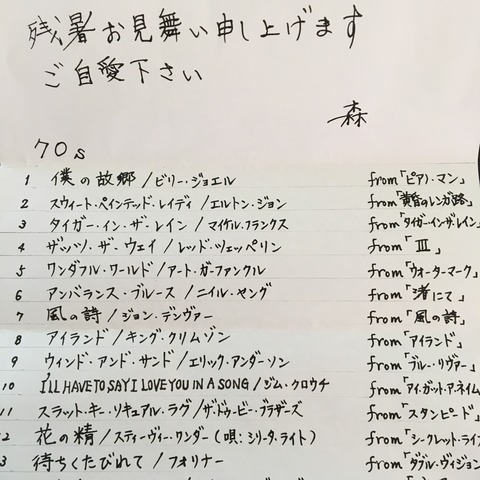 残暑お見舞い申し上げます
ご自愛下さい
森
70s
1 僕の故郷/ビリー・ジョエル from「ピアノ・マン」
2 スウィート・ペインテッド・レイディ/エルトン・ジョン from「黄昏のレンガ路」
3 タイガー・イン・ザ・レイン/マイケル・フランクス from「タイガー・イン・ザ・レイン」
4 ザッツ・ザ・ウェイ/レッド・ツェッペリン from「Ⅲ」
5 ワンダフル・ワールド/アート・ガーファンクル from「ウォーターマーク」
6 アンバランス・ブルース/ニイル・ヤング from「渚にて」
7 風の詩/ジョン・デンヴァー from「風の詩」
8 アイランド/キング・クリムゾン from「アイランド」
9 ウィンド・アンド・サンド/エリック・アンダーソン from「ブルー・リヴァー」
10 I'LL HAVE TO SAY I LOVE YOU IN A SONG/ジム・クロウチ from「アイ・ガット・ア・ネイム
11 スラット・キー・ソキュアル・ラグ/ザ・ドゥービー・ブラザーズ from「スタンピード」
12 花の精/スティーヴィー・ワンダー(唄:シリータ・ライト) from「シークレット・ライフ
3 待ちくたびれて/フォリナー from「ダブル・ヴィジョン